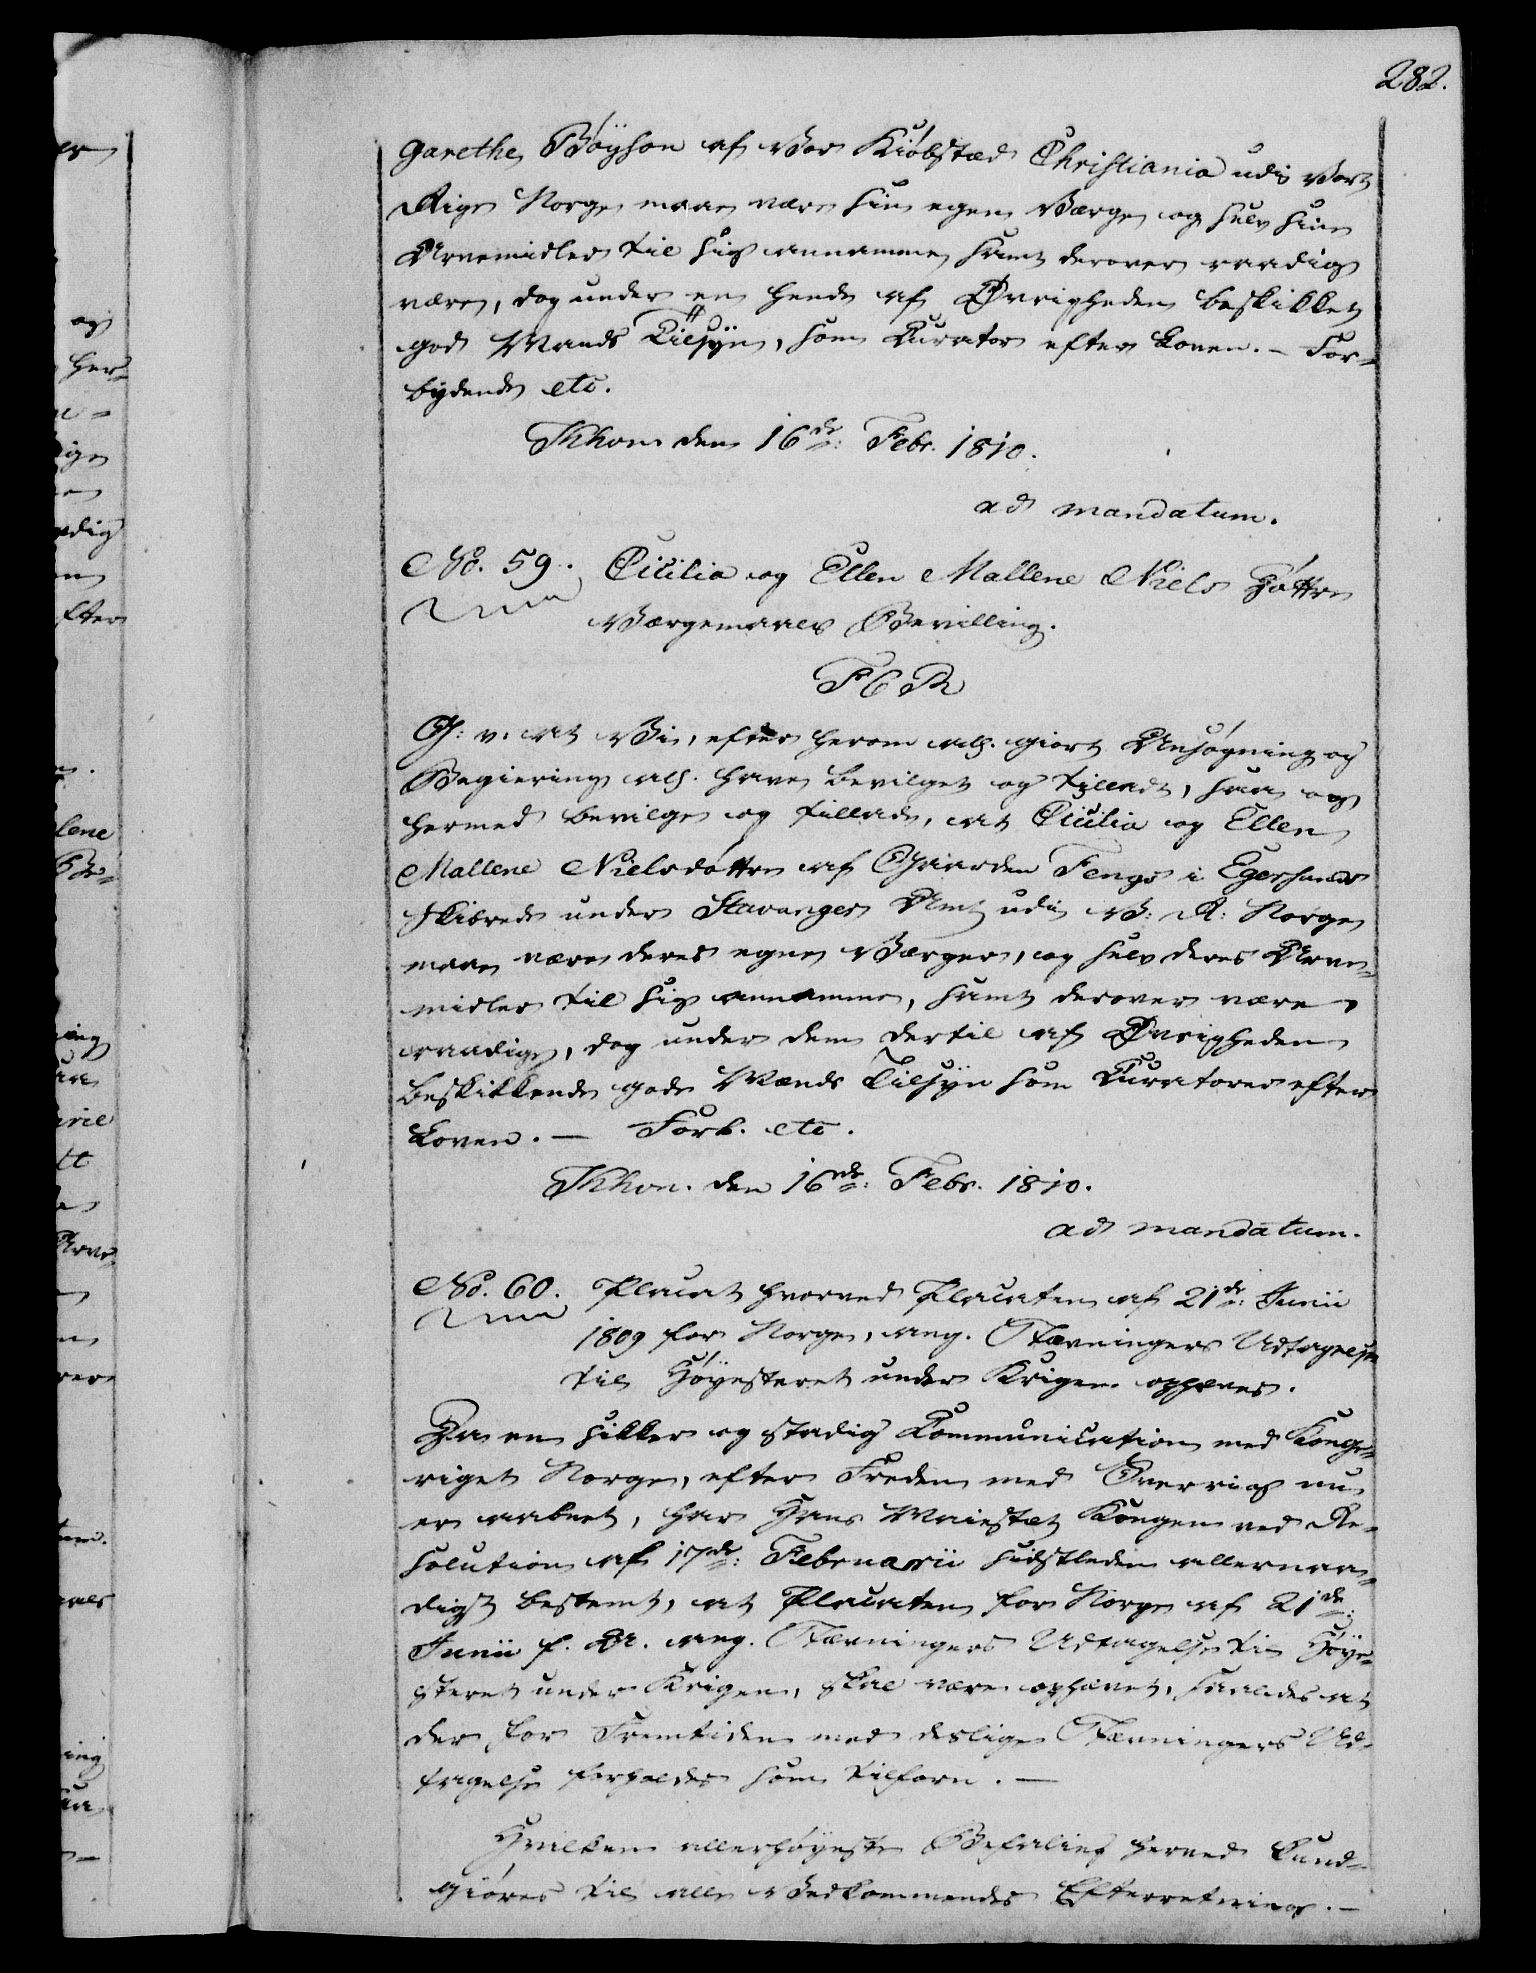 282.
garethe Böyson af Vor Kiöbstæd Christiania udi Vort
Rige Norge maae være sin egen Værge og selv sine
Arvemidler til sig annamme samt derover raadig
være, dog under en hende af Øvrigheden beskikket
god Mands Tilsÿn, som Curator efter Loven. – For-
bydende etc.
Khvn den 16de: Febr. 1810.
ad mandatum.
No. 59. Cicilia og Ellen Mallene Niels Döttre
Værgemaals Bevilling.
F6R
G: v. at Vi, efter herom als. giort Ansögning og
Begiering als. have bevilget og tilladt, saa og
hermed bevilge og tillade, at Cicilia og Ellen
Mallene Nielsdöttre af Gaarden Fenge i Egersunds
Skibrede under Stavanger Amt udi V: R: Norge
maae være deres egne Værger, og selv deres Arve-
midler til sig annamme, samt derover være
raadige, dog under dem dertil af Øvrigheden
beskikkende gode Mænds Tilsÿn som Curatorer efter
Loven. — Forb. etc.
Khvn. den 16de: Febr. 1810.
ad mandatum.
No. 60. Placat hvorved Placaten af 21de: Junii
1809 for Norge, ang. Stævningers Udtagelse
til Höyesteret under Krigen ophæves.
Da en sikker og stadig Communication med Konge-
riget Norge, efter Freden med Sverrig nu
er aabnet, har Hans Maiestæt Kongen ved Re-
solution af 17de: Februarii sidstleden allernaa-
digst bestemt, at Placaten for Norge af 21de:
Junii f. A. ang. Stævningers Udtagelse til Höye-
steret under Krigen, skal være ophævet, saaledes at
der for Fremtiden med deslige Stævningers Ud-
tagelse forholdes som tilforn. —
Hvilken allerhöyeste Befaling herved kund-
giöres til alle Vedkommendes Efterretning. —